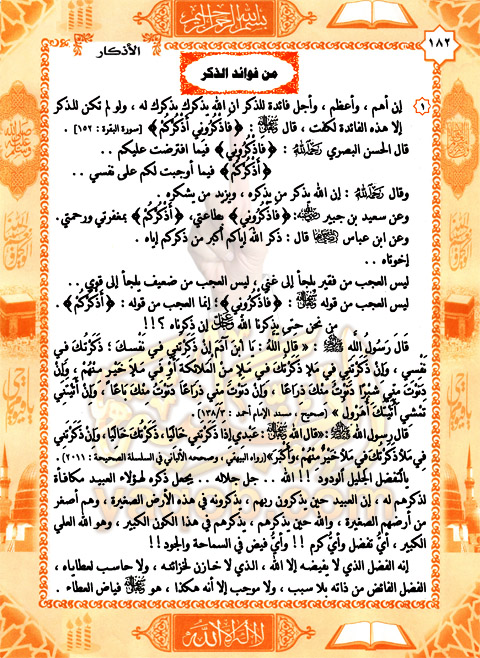 بسم الله الرحمن الرحيم
١٨٢
الأذكار
من فوائد الذكر
١ إن أهم ، وأعظم ، وأجل فائدة للذكر ان الله يذكرك بذكرك له ، ولو لم تكن للذكر
إلا هذه الفائدة لكفت ، قال ﷻ : ﴿ فَاذْكُرُونِي أَذْكُرْكُمْ ﴾ [ سورة البقرة : ١٥٢ ] .
قال الحسن البصري رحمه الله : ﴿ فَاذْكُرُونِي ﴾ فيما افترضت عليكم ..
﴿ أَذْكُرْكُمْ ﴾ فيما أوجبت لكم على نفسي ..
وقال رحمه الله : إن الله يذكر من يذكره ، ويزيد من يشكره .
وعن سعيد بن جبير : ﴿ فَاذْكُرُونِي ﴾ بطاعتي ، ﴿ أَذْكُرْكُمْ ﴾ بمغفرتي ورحمتي .
وعن ابن عباس قال : ذكر الله إياكم أكبر من ذكركم إياه .
إخوتاه ..
ليس العجب من فقير يلجأ إلى غني ، ليس العجب من ضعيف يلجأ إلى قوي ..
ليس العجب من قوله ﷻ : ﴿ فَاذْكُرُونِي ﴾ ؛ إنما العجب من قوله : ﴿ أَذْكُرْكُمْ ﴾ .
من نحن حتى يذكرنا الله إن ذكرناه ؟!!
قَالَ رَسُولُ اللَّهِ ﷺ : « قَالَ اللَّهُ : يَا ابْنَ آدَمَ إِنْ ذَكَرْتَنِي فِي نَفْسِكَ ؛ ذَكَرْتُكَ فِي
نَفْسِي ، وَإِنْ ذَكَرْتَنِي فِي مَلَإٍ ذَكَرْتُكَ فِي مَلَإٍ مِنْ الْمَلَائِكَةِ أَوْ فِي مَلَإٍ خَيْرٍ مِنْهُمْ ، وَإِنْ
دَنَوْتَ مِنِّي شِبْرًا دَنَوْتُ مِنْكَ ذِرَاعًا ، وَإِنْ دَنَوْتَ مِنِّي ذِرَاعًا دَنَوْتُ مِنْكَ بَاعًا ، وَإِنْ أَتَيْتَنِي
تَمْشِي أَتَيْتُكَ أُهَرْوِلُ » ( صحيح ، مسند الإمام أحمد : ١٣٨/٣ ) .
قال رسول الله ﷺ : « قال الله : عبدي إذا ذكرتني خاليا ، ذكرتك خاليا ، وإن ذكرتني
في ملأ ذكرتك في ملأ خير منهم وأكبر » ( رواه البيهقي ، وصححه الألباني في السلسلة الصحيحة : ٢٠١١ ) .
يالتفضل الجليل الودود !! الله .. جل جلاله .. يجعل ذكره لهؤلاء العبيد مكافأة
لذكرهم له ، إن العبيد حين يذكرون ربهم ، يذكرونه في هذه الأرض الصغيرة ، وهم أصغر
من أرضهم الصغيرة ، والله حين يذكرهم ، يذكرهم في هذا الكون الكبير ، وهو الله العلي
الكبير ، أيُّ تفضل وأيُّ كرم !! وأيُّ فيض في السماحة والجود !!
إنه الفضل الذي لا يفيضه إلا الله ، الذي لا خازن لخزائنه ، ولا حاسب لعطاياه ،
الفضل الفائض من ذاته بلا سبب ، ولا موجب إلا أنه هكذا ، هو فياض العطاء .
لا إله إلا الله